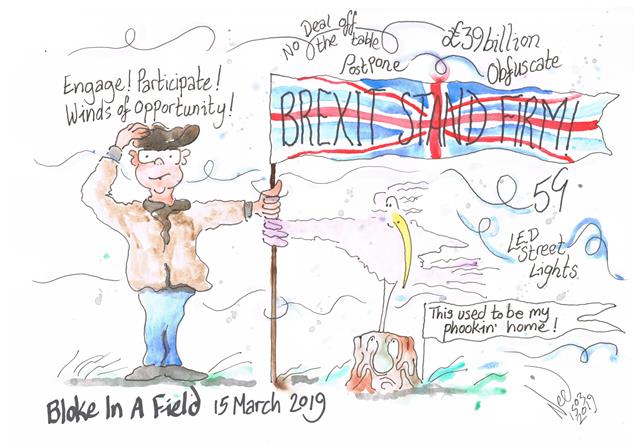 No Deal off
the table
Postpone
£39 billion
Obfuscate
Engage! Participate!
Winds of Opportunity!
BREXIT STAND FIRM!
59
LED
Street
Lights.
This used to be my
phookin' home!
Bloke In A Field 15 March 2019